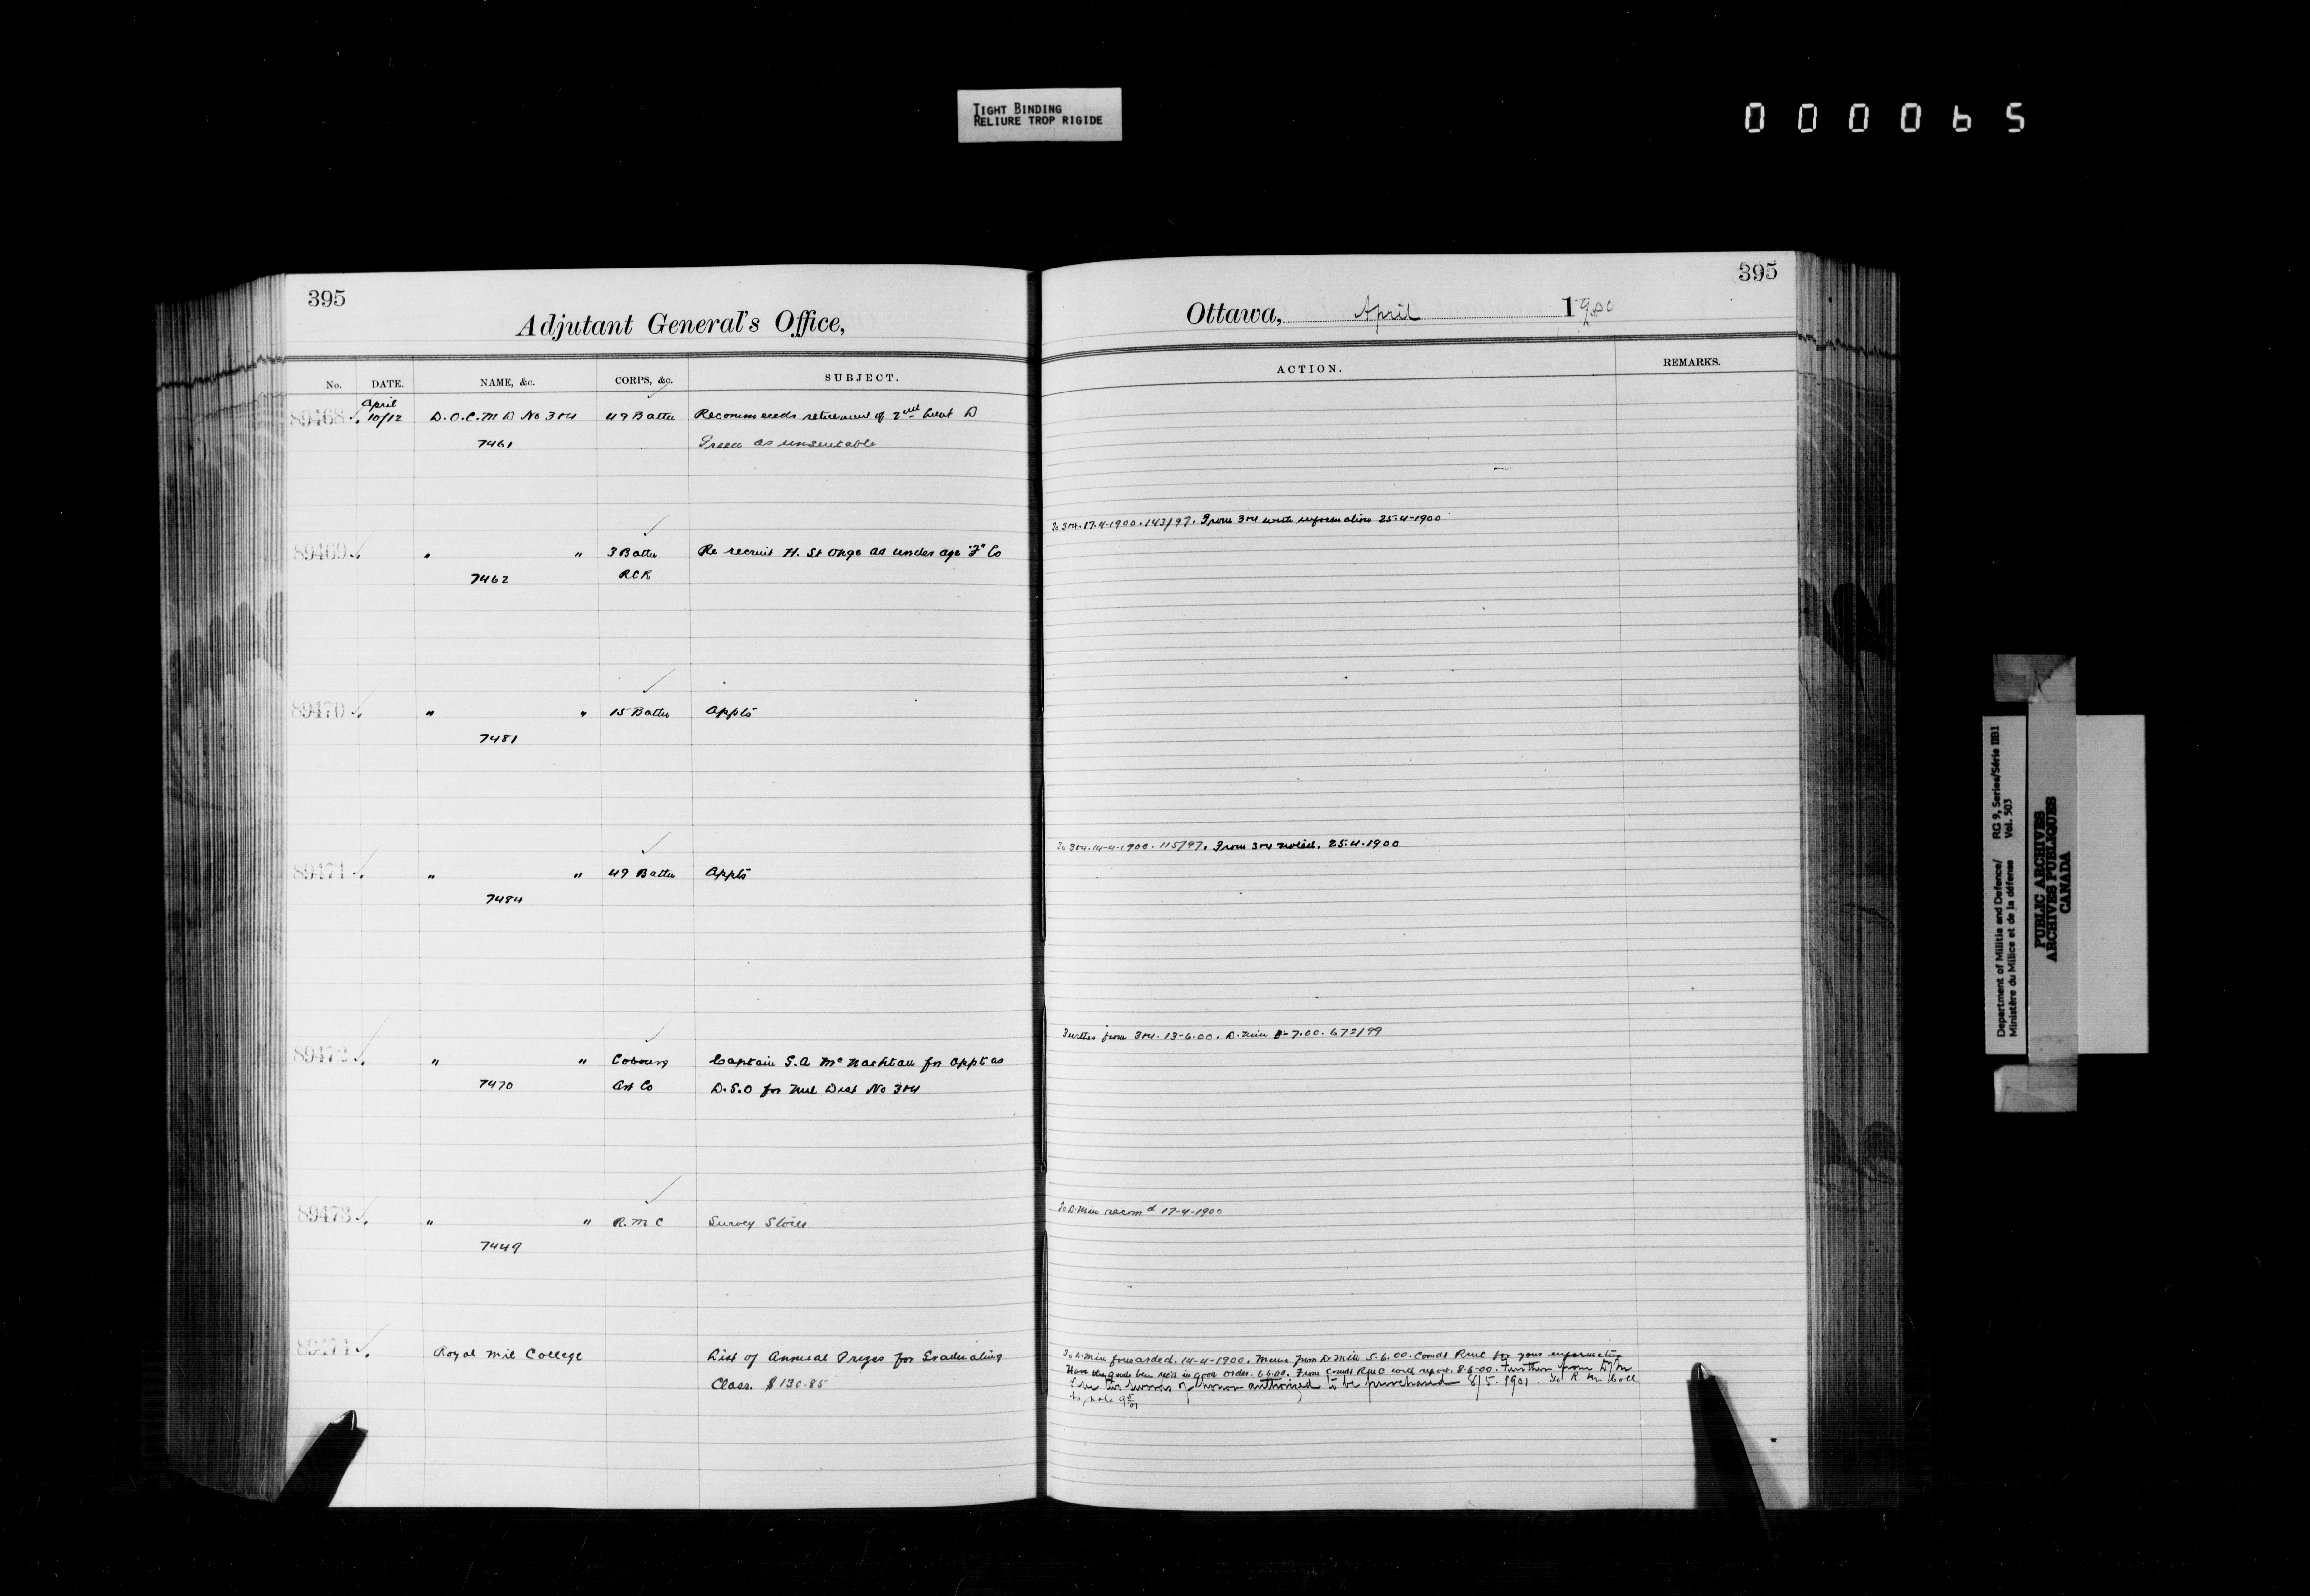 TIGHT BINDING
RELIURE TROP RIGIDE
000065
395
Adjutant General's Office,
No. DATE. NAME, &c. CORPS, &c. SUBJECT.
April
89468 10/12 D.O.C.M D No 3+4 49 Battn Recommends retirement of 2nd Lieut D
7461 Green as unsuitable
89469 " " 3 Battn Re recruit H. St Onge as under age "F" Co
7462 RCR
89470 " " 15 Battn Appts
7481
89471 " " 49 Battn Appts
7484
89472 " " Cobourg Captain S.A McNachtan for appt as
7470 Art Co D.S.O for Mil Dist No 3+4
89473 " " R.M C Survey Stores
7449
89474 Royal Mil College List of Annual Prizes for Graduating
Class. $130.85
395
Ottawa, April 1900
ACTION. REMARKS.
To 3+4. 17-4-1900. 143/97. From 3+4 with information 25-4-1900
To 3+4. 14-4-1900. 115/97. From 3+4 noted. 25.4.1900
Further from 3+4. 13-6.00. D. Min 8-7.00. 672/99
To D. Min recomd 17-4-1900
To D. Min forwarded. 14-4-1900. Memo from D Min 5.6.00. Comdt RMC for your information
Have the goods been rec'd in good order. 6.6.00. From Comdt RMC with report. 8-6-00. Further from D/M
two swords of honor authorized to be purchased 8/5.1901. To R. M. Coll
to note 9/5/01
Department of Militia and Defence/ RG 9, Series/Série IIB1
Ministère du Milice et de la défense Vol. 503
PUBLIC ARCHIVES
ARCHIVES PUBLIQUES
CANADA